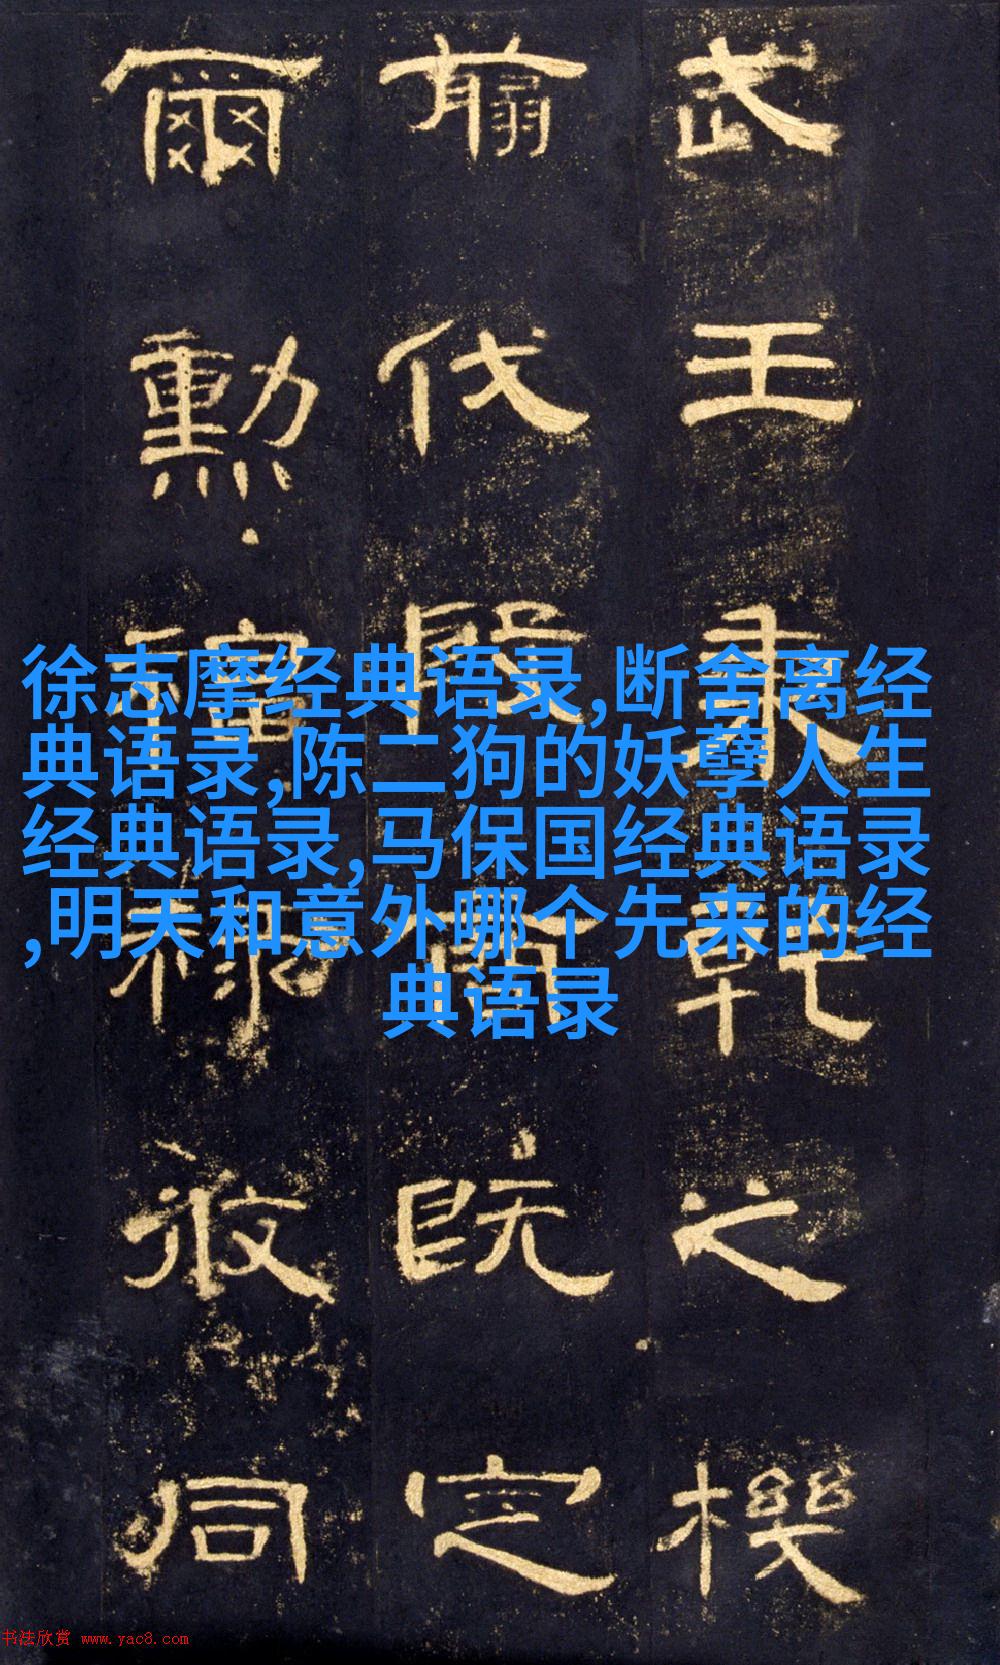 武王秉乾之機
翦伐殷商既定
爾勲福祿攸同
徐志摩经典语录,断舍离经
典语录,陈二狗的妖孽人生
经典语录,马保国经典语录
,明天和意外哪个先来的经
典语录
书法欣赏 www.yac8.com